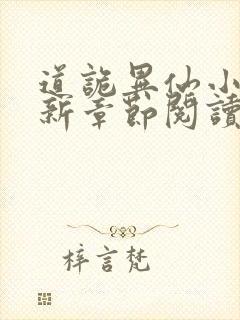 道詭異仙小
新章節閱讀
梓言梵